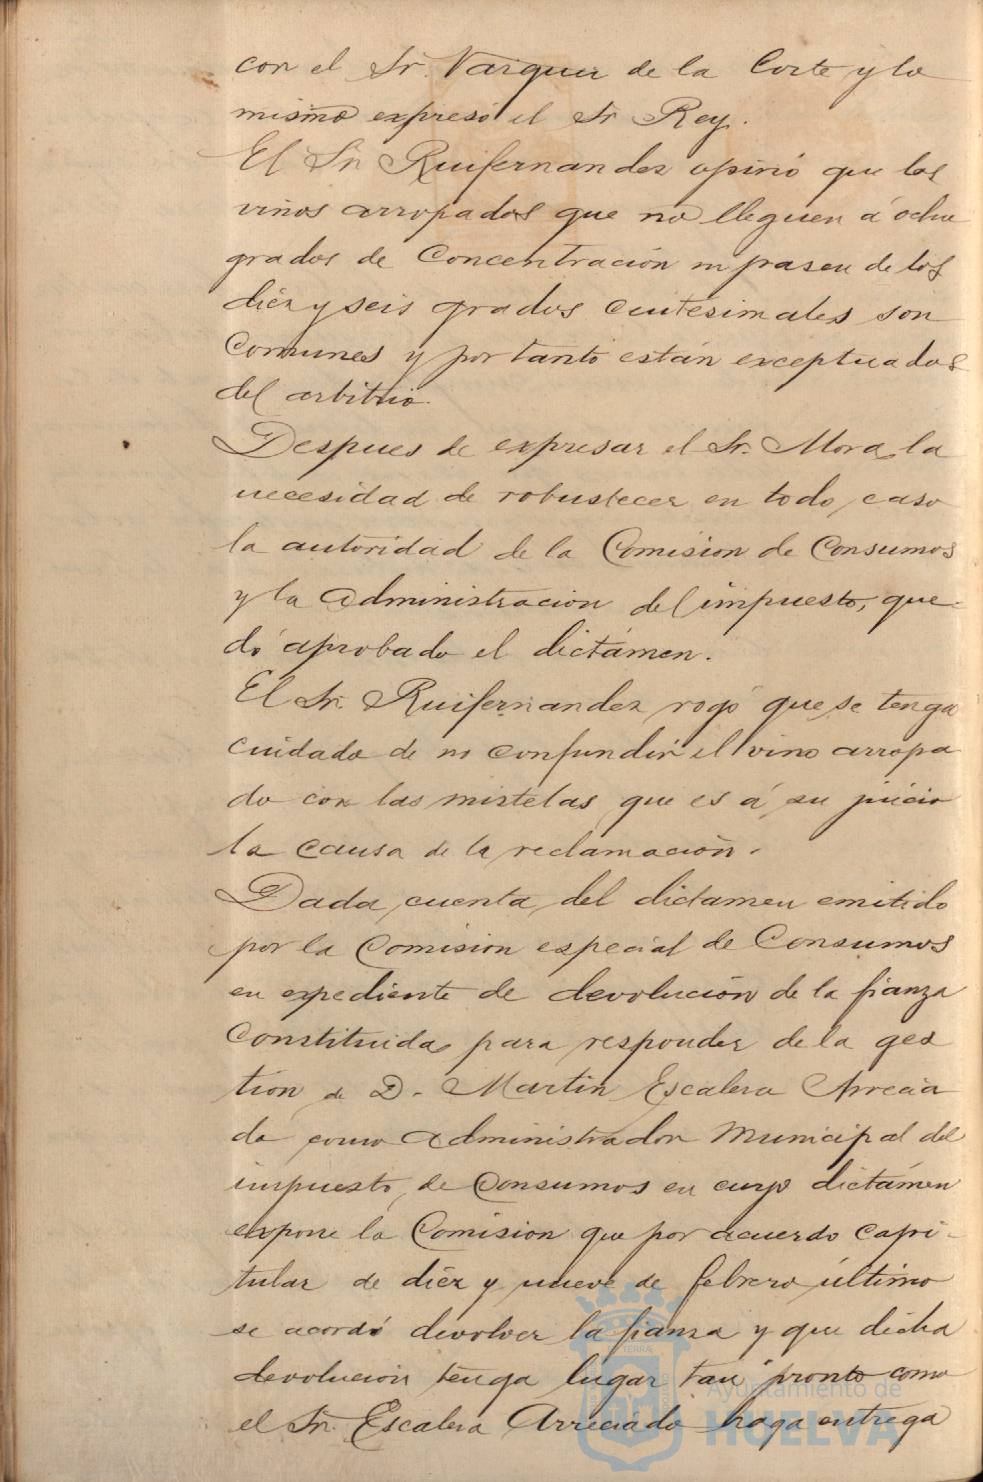 con el Sr. Vazquez de la Corte y lo
mismo expresó el Sr Rey.
El Sr. Ruifernandez opinó que los
vinos arropados que no lleguen á ocho
grados de concentración ni pasen de los
diéz y seis grados centésimales son
comunes y por tanto están exceptuados
del arbitrio.
Despues de expresar el Sr. Mora la
necesidad de robustecer en todo caso
la autoridad de la Comision de Consumos
y la administracion del impuesto, que-
dó aprobado el dictámen.
El Sr. Ruifernandez rogó que se tenga
cuidado de no confundir el vino arropa
do con las mistelas, que es á su juicio
la causa de la reclamación.
Dada cuenta del dictamen emitido
por la Comision especial de Consumos
en expediente de devolución de la fianza
constituida para responder de la ges
tion de D. Martin Escalera Arrecia
do como administrador municipal del
impuesto de Consumos en cuyo dictámen
expone la Comision que por acuerdo capi-
tular de diéz y nueve de febrero último
se acordó devolver la fianza y que dicha
devolucion tenga lugar tan pronto como
el Sr. Escalera Arreciado haga entrega
Ayuntamiento de
HUELVA